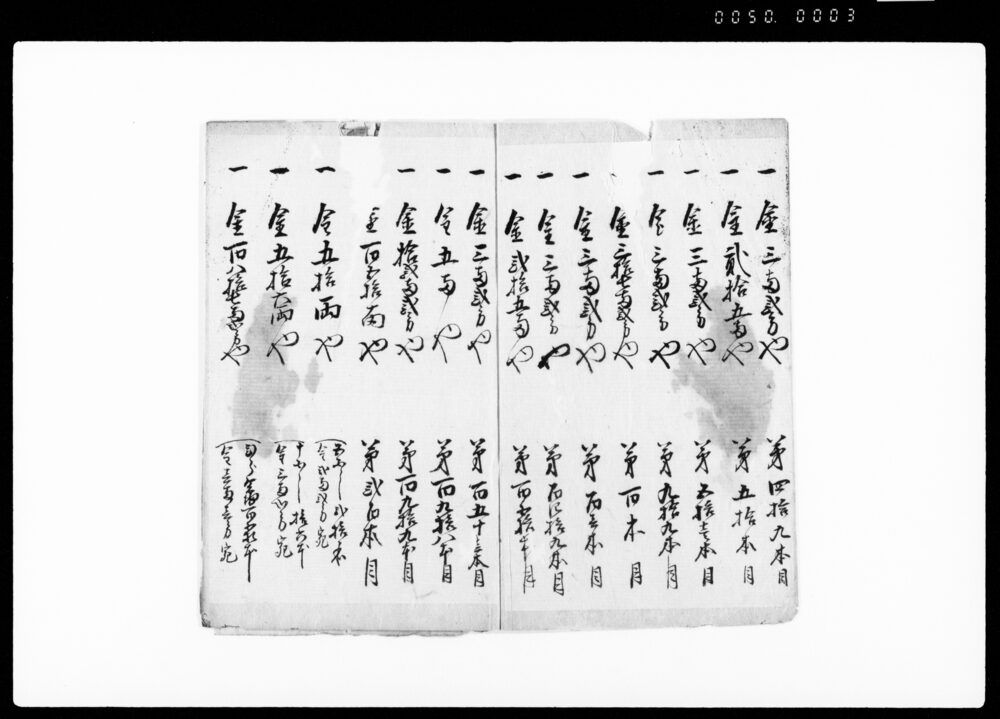 0050. 0003
一 金三両弐分也 第四拾九本目
一 金弐拾五両也 第五拾本目
一 金三両弐分也 第五拾壱本目
一 金三両弐分也 第九拾九本目
一 金三拾七両弐分也 第百本目
一 金三両弐分也 第百壱本目
一 金三両弐分也 第百四拾九本目
一 金弐拾五両也 第百五拾本目
一 金三両弐分也 第百五十壱本目
一 金五両也 第百九拾八本目
一 金拾弐両弐分也 第百九拾九本目
金百五拾両也 第弐百本目
一 金五拾両也
金弐両弐分宛
一 金五拾六両也
拾六本
一 金百八拾七両弐分也
金壱両壱分宛